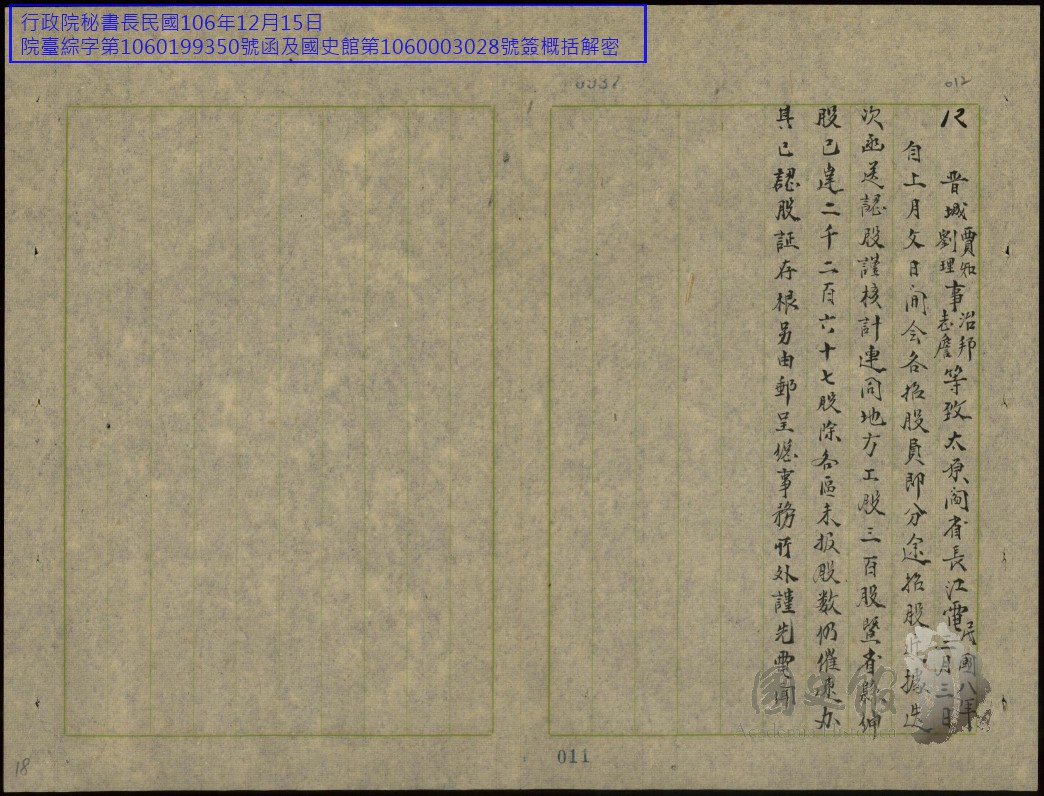 行政院秘書長民國106年12月15日
院臺綜字第1060199350號函及國史館第1060003028號簽概括解密
012
晋城賈知劉理事治邦志詹等致太原閻省長江電民國八年二月三日
自上月文日開会各招股員即分途招股近據迭
次函送認股謹核計連同地方工股三百股暨省縣绅
股已達二千二百六十七股除各區未报股数仍催速办
具已認股証存根另由郵呈总事務所外謹先電聞
國史館
011
18